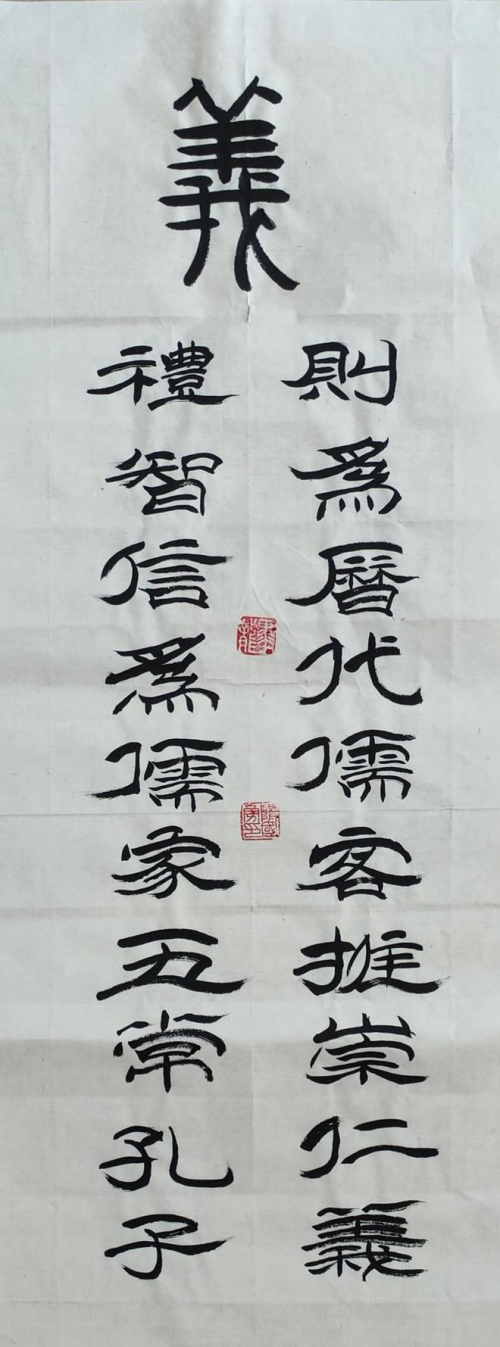 義
則為曆代儒客推崇仁義
禮智信為儒家五常孔子